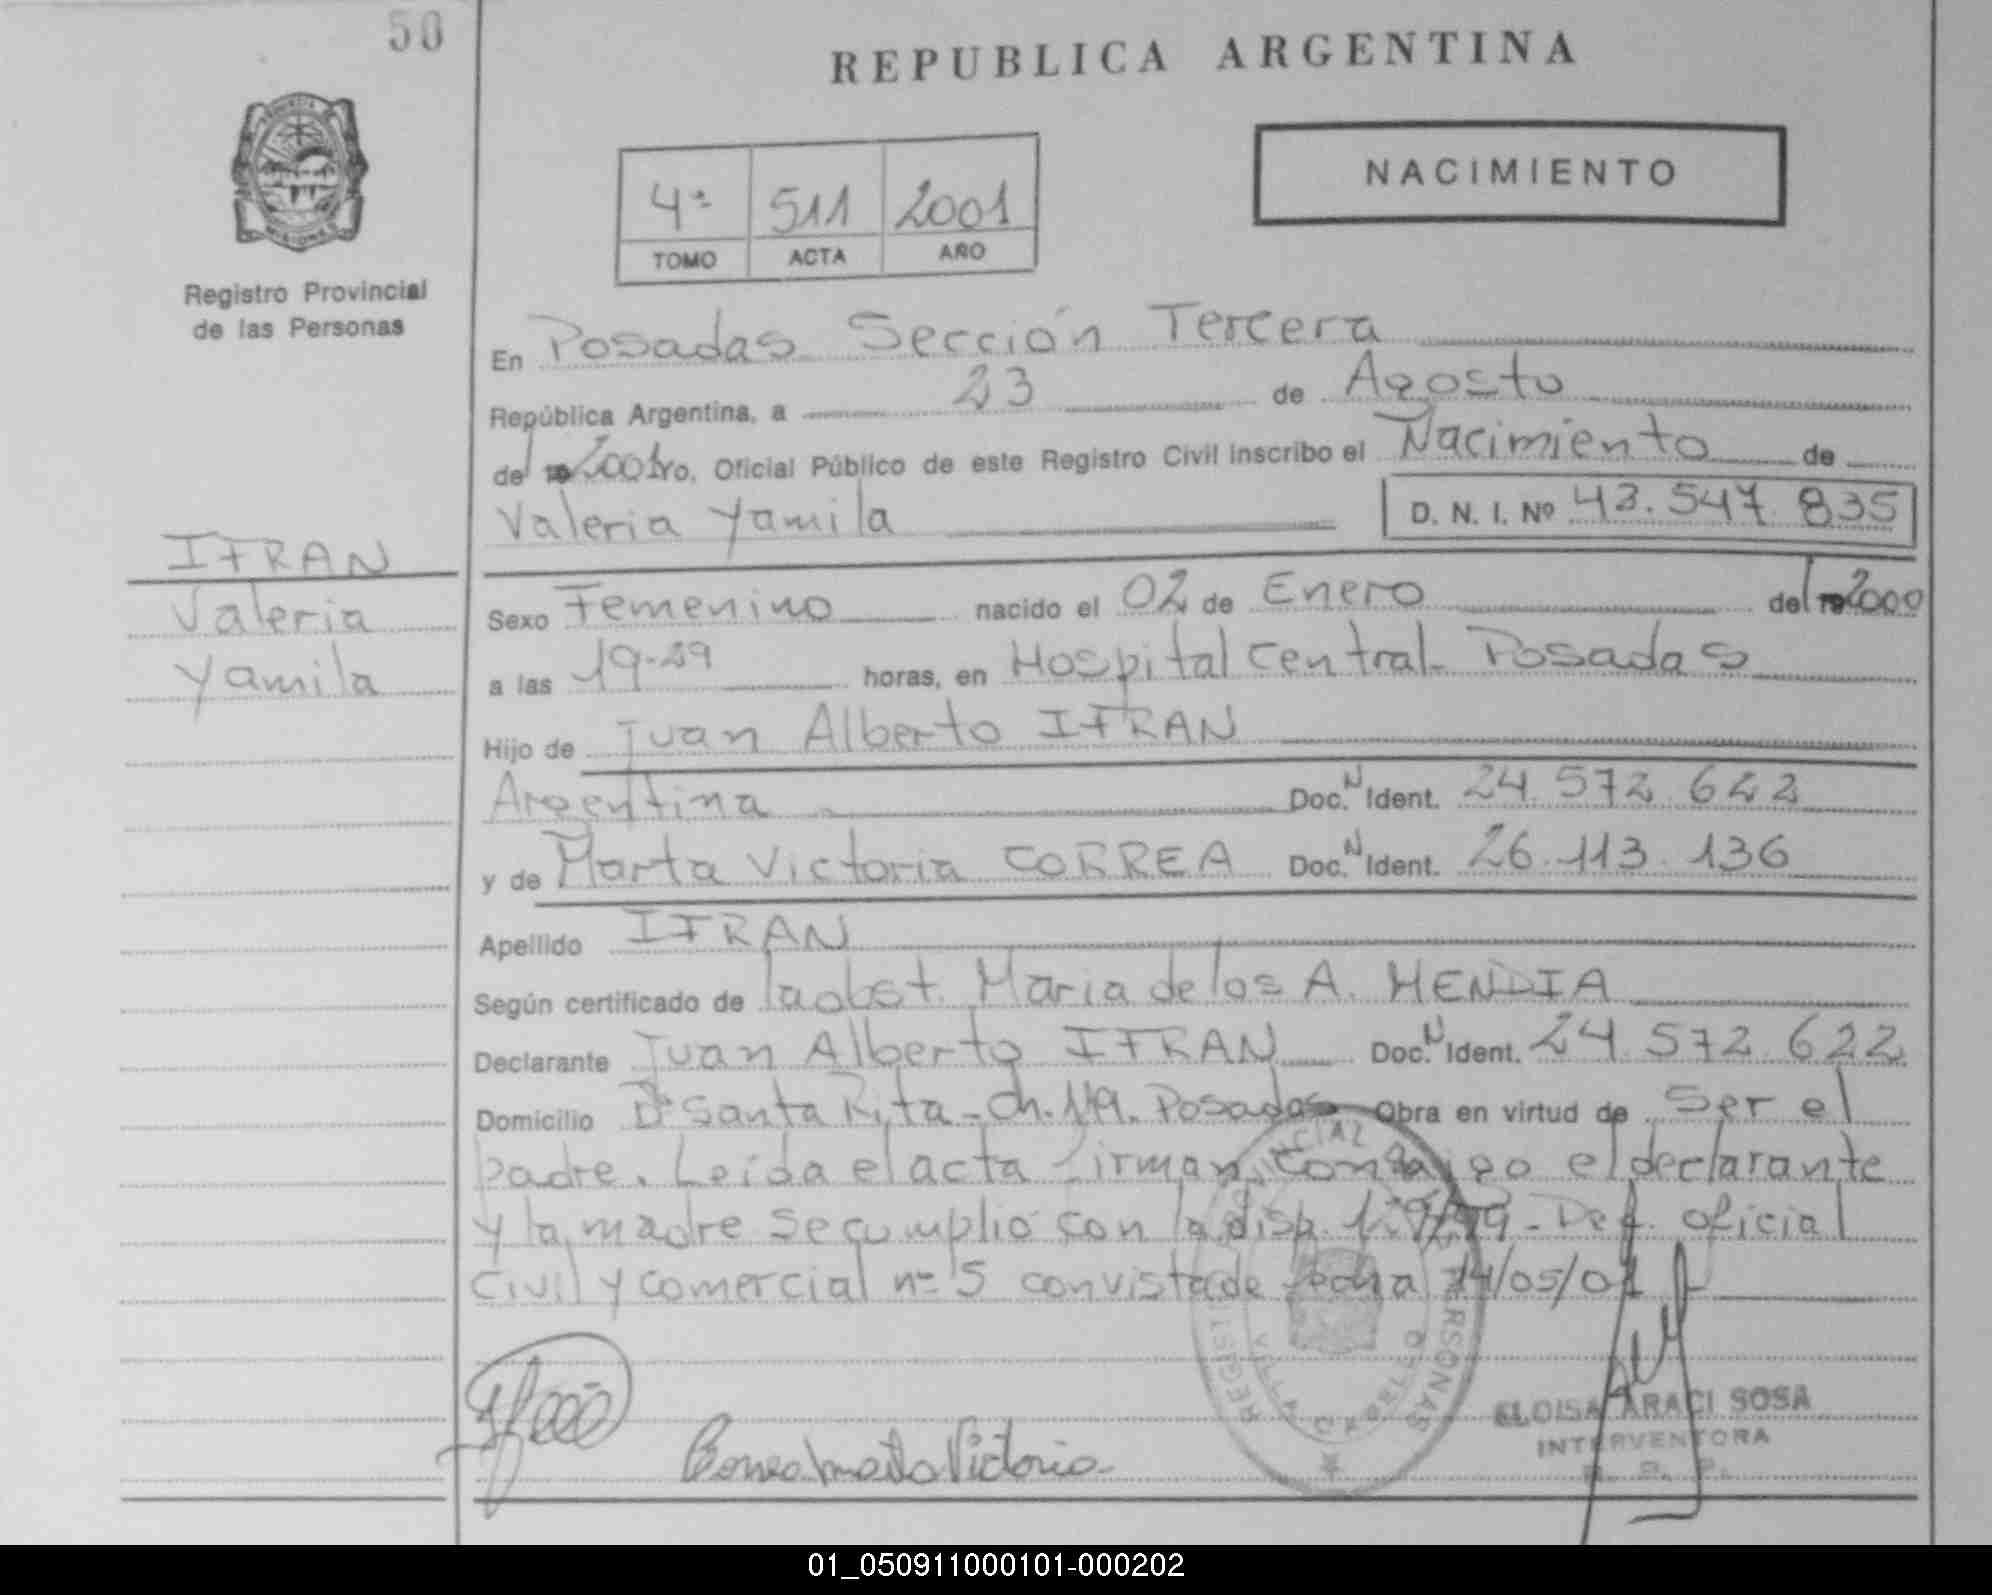 50
REPUBLICA ARGENTINA
NACIMIENTO
4ª 511 2001
TOMO ACTA AÑO
Registro Provincial
de las Personas
En Posadas Sección Tercera
República Argentina, a 23 de Agosto
de 2001 yo, Oficial Público de este Registro Civil inscribo el Nacimiento de
Valeria Yamila D. N. I. Nº 42.547.835
IFRAN
Valeria
Yamila
Sexo Femenino nacido el 02 de Enero del 2000
a las 19-29 horas, en Hospital Central Posadas
Hijo de Juan Alberto IFRAN
Argentina Doc. N Ident. 24.572.622
y de Marta Victoria CORREA Doc. N Ident. 26.113.136
Apellido IFRAN
Según certificado de la obst. Maria de los A. MENDIA
Declarante Juan Alberto IFRAN Doc. N Ident. 24.572.622
Domicilio Bº Santa Rita - Ch. 119. Posadas Obra en virtud de ser el
padre. Leida el acta firman conmigo el declarante
y la madre se cumplió con la disp. /99 - Def. oficial
Civil y comercial nº 5 con vista de fecha 14/05/01
REGISTRO PROVINCIAL PERSONAS
VILLA CABELLO
Correa Marta Victoria
ELOISA ARACI SOSA
INTERVENTORA
R. P. P.
01_050911000101-000202